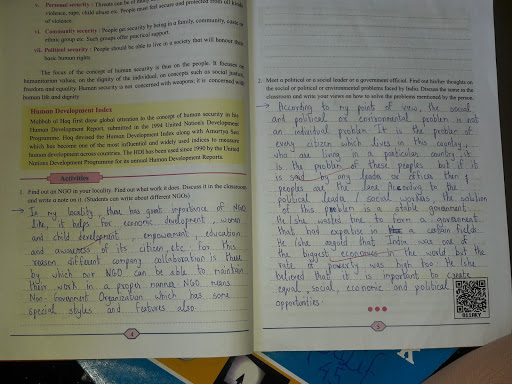 v. Personal security : Threats can be of many
violence, rape, child abuse etc. People must feel secure and protected from all kinds
of violence.
vi. Community security : People get security by being in a family, community,
ethnic group etc. Such groups offer practical support.
vii. Political security : People should be able to live in a society that will honour their
basic human rights.
The focus of the concept of human security is thus on the people. It focuses on
humanitarian values, on the dignity of the individual, on concepts such as social justice,
freedom and equality. Human security is not concerned with weapons; it is concerned with
human life and dignity.
Human Development Index
Mahbub ul Haq first drew global attention to the concept of human security in his
Human Development Report, submitted in the 1994 United Nation's Development
Programme. Haq devised the Human Development Index along with Amartya Sen
which has become one of the most influential and widely used indices to measure
human development across countries. The HDI has been used since 1990 by the United
Nations Development Programme for its annual Human Development Reports.
Activities
1. Find out an NGO in your locality. Find out what work it does. Discuss it in the classroom
and write a note on it. (Students can write about different NGOs)
→ In my locality, there has great importance of NGO
like, it helps for economic development, women
and child development, empowerment, education
and awareness of its citizen, etc. For this
reason different company collaboration is there
by which our NGO can be able to maintain
their work in a proper manner. NGO means
Non-Government Organization which has some
special styles and features also.
4
2. Meet a political or a social leader or a government official. Find out his/her thoughts on
the social or political or environmental problems faced by India. Discuss the same in the
classroom and write your views on how to solve the problems mentioned by the person.
→ According to my point of view, the social
and political or environmental problem is not
an individual problem. It is the problem of
every citizen which lives in this country,
who are living in a particular country, it
is the problem of these peoples but if it
is said by any leader or officer then
peoples are the same. According to the
political leader / social workers, the solution
of this problem is a stable government.
He/she wants one to form a government
that had expertise in certain fields.
He/she argued that India was one of
the biggest economies in the world but the
rate of poverty was high too. He/she
believed that it's important to create
equal, social, economic and political
opportunities.
5